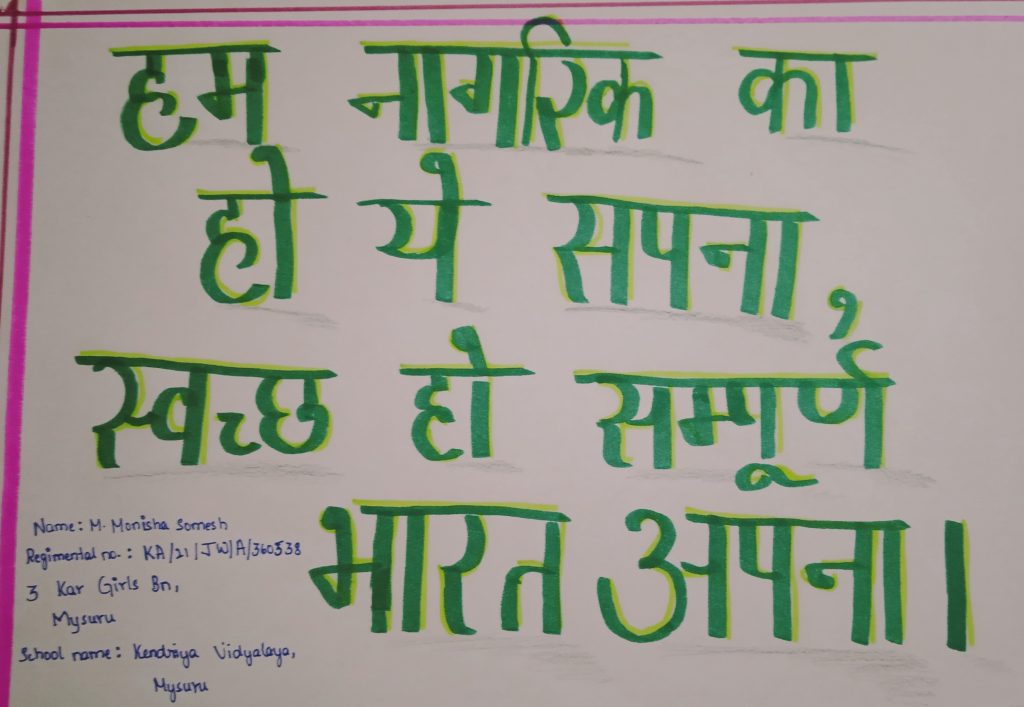 हम नागरिक का
हो ये सपना,
स्वच्छ हो सम्पूर्ण
भारत अपना।
Name: M. Monisha Somesh
Regimental no.: KA/21/JW/A/360538
3 Kar Girls Bn,
Mysuru
School name: Kendriya Vidyalaya,
Mysuru